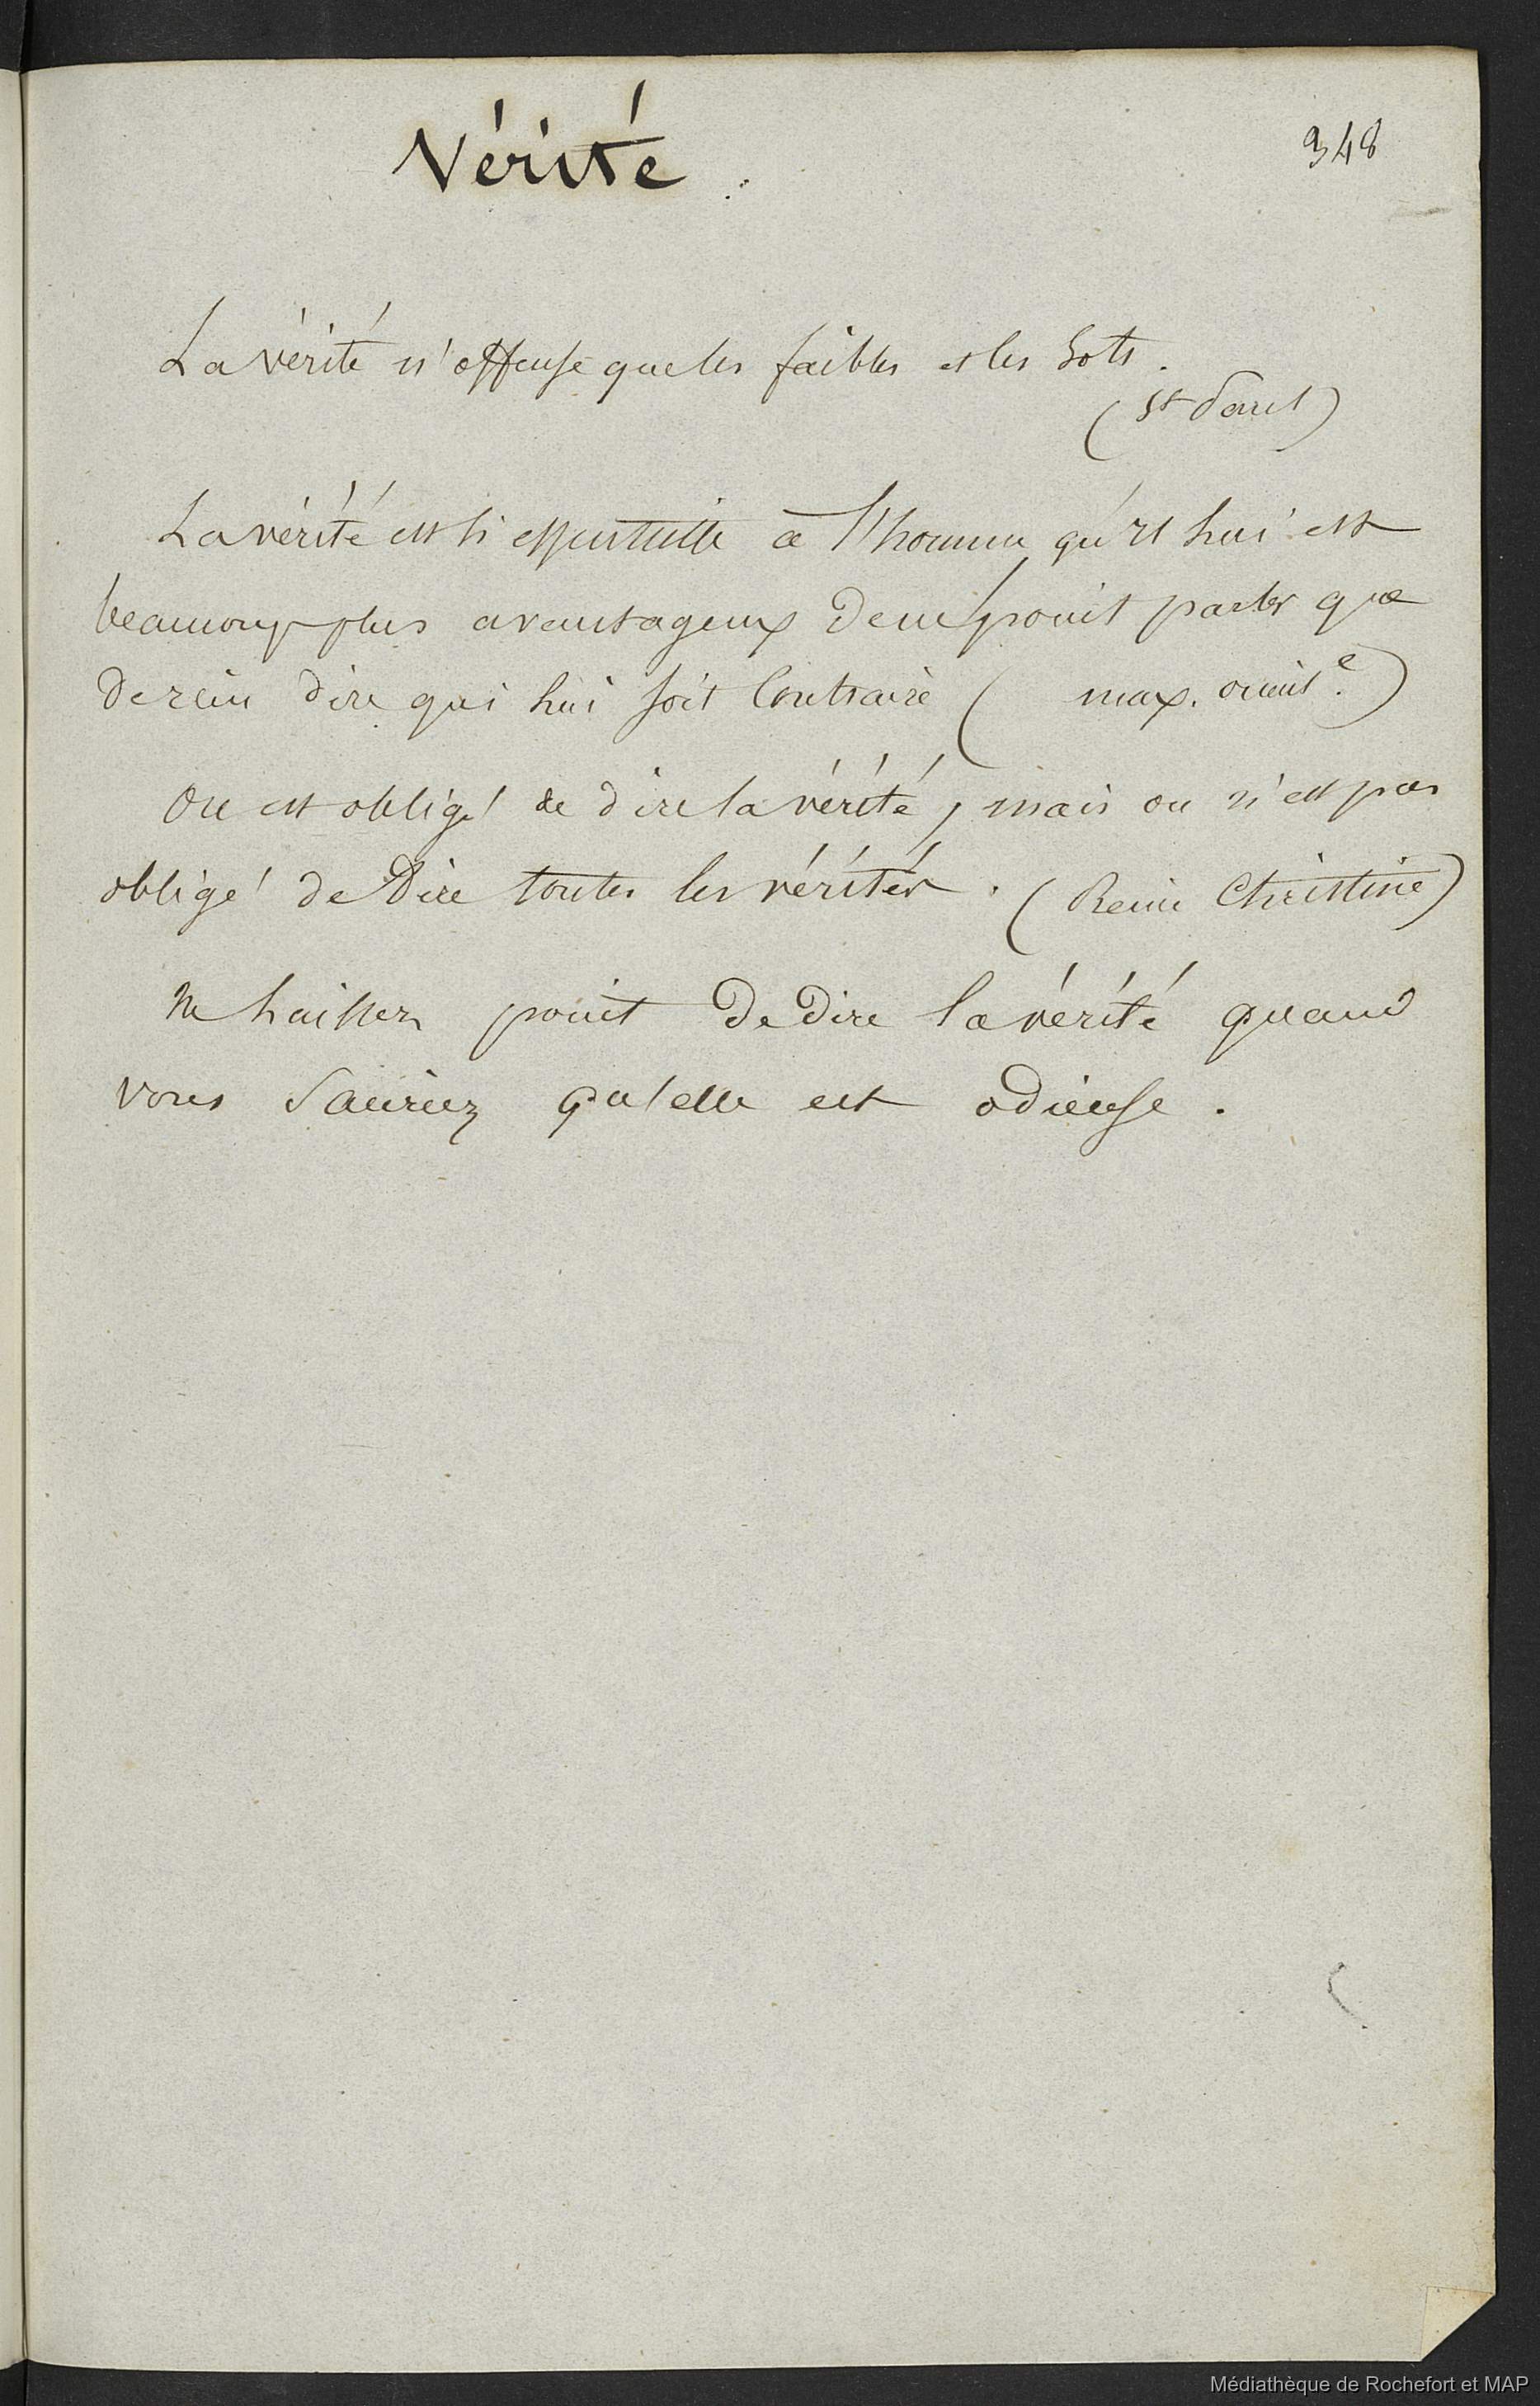 Vérité.
348
La vérité n'offense que les faibles et les Sots.
(St Paul)
La vérité est si essentielle à l'homme qu'il lui est
beaucoup plus avantageux de ne point parler que
de rien dire qui lui soit Contraire ( max. orient.e)
On est obligé de dire la vérité, mais on n'est pas
obligé de Dire toutes les vérités. (Reine Christine)
Ne laissez point de dire la vérité quand
vous sauriez qu'elle est odieuse.
Médiathèque de Rochefort et MAP